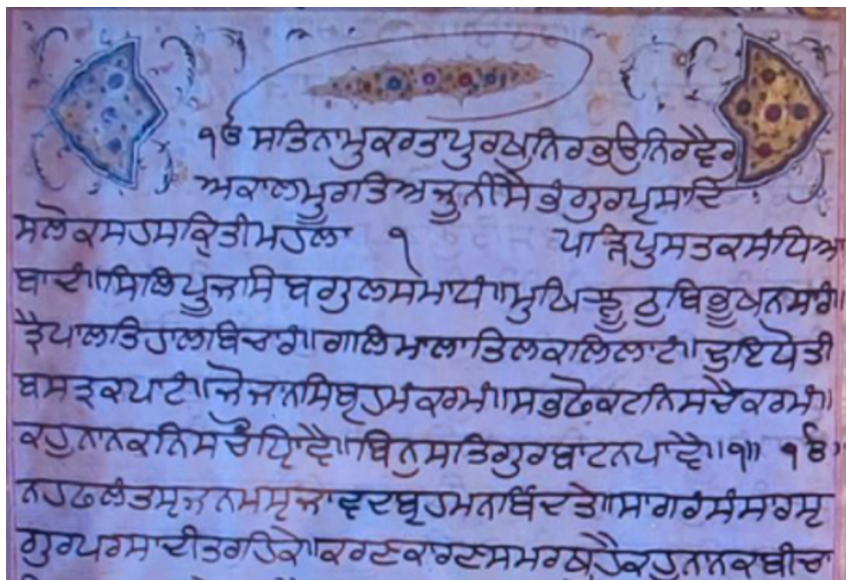 ੴ ਸਤਿਨਾਮੁਕਰਤਾਪੁਰਖੁਨਿਰਭਉਨਿਰਵੈਰ
ਅਕਾਲਮੂਰਤਿਅਜੂਨੀਸੈਭੰਗੁਰਪ੍ਰਸਾਦਿ
ਸਲੋਕਸਹਸਕ੍ਰਿਤੀਮਹਲਾ ੧ ਪੜ੍ਹਿਪੁਸਤਕਸੰਧਿਆ
ਬਾਦੰ॥ਸਿਲਿਪੂਜਸਿਬਗੁਲਸਮਾਧੰ॥ਮੁਖਿਝੂਠੁਬਿਭੂਖਨਸਾਰੰ॥
ਤ੍ਰੈਪਾਲਤਿਹਾਲਬਿਚਾਰੰ॥ਗਲਿਮਾਲਾਤਿਲਕਲਿਲਾਟੰ॥ਦੁਇਧੋਤੀ
ਬਸਤ੍ਰਕਪਾਟੰ॥ਜੋਜਾਨਸਿਬ੍ਰਹਮੰਕਰਮੰ॥ਸਭਫੋਕਟਨਿਸਚੈਕਰਮੰ॥
ਕਹੁਨਾਨਕਨਿਸਚੌਧ੍ਯਿਾਵੈ॥ਬਿਨੁਸਤਿਗੁਰਬਾਟਨਪਾਵੈ॥੧॥ ੴ
ਨਹਫਲੰਤਸ੍ਯਜਨਮਸ੍ਯਜਾਵਦਬ੍ਰਹਮਨਬਿੰਦਤੇ॥ਸਾਗਰੰਸੰਸਾਰਸ੍ਯ
ਗੁਰਪਰਸਾਦੀਤਰਹਿਕੇ॥ਕਰਣਕਾਰਣਸਮਰਥੁਹੈਕਹੁਨਾਨਕਬੀਚਾ